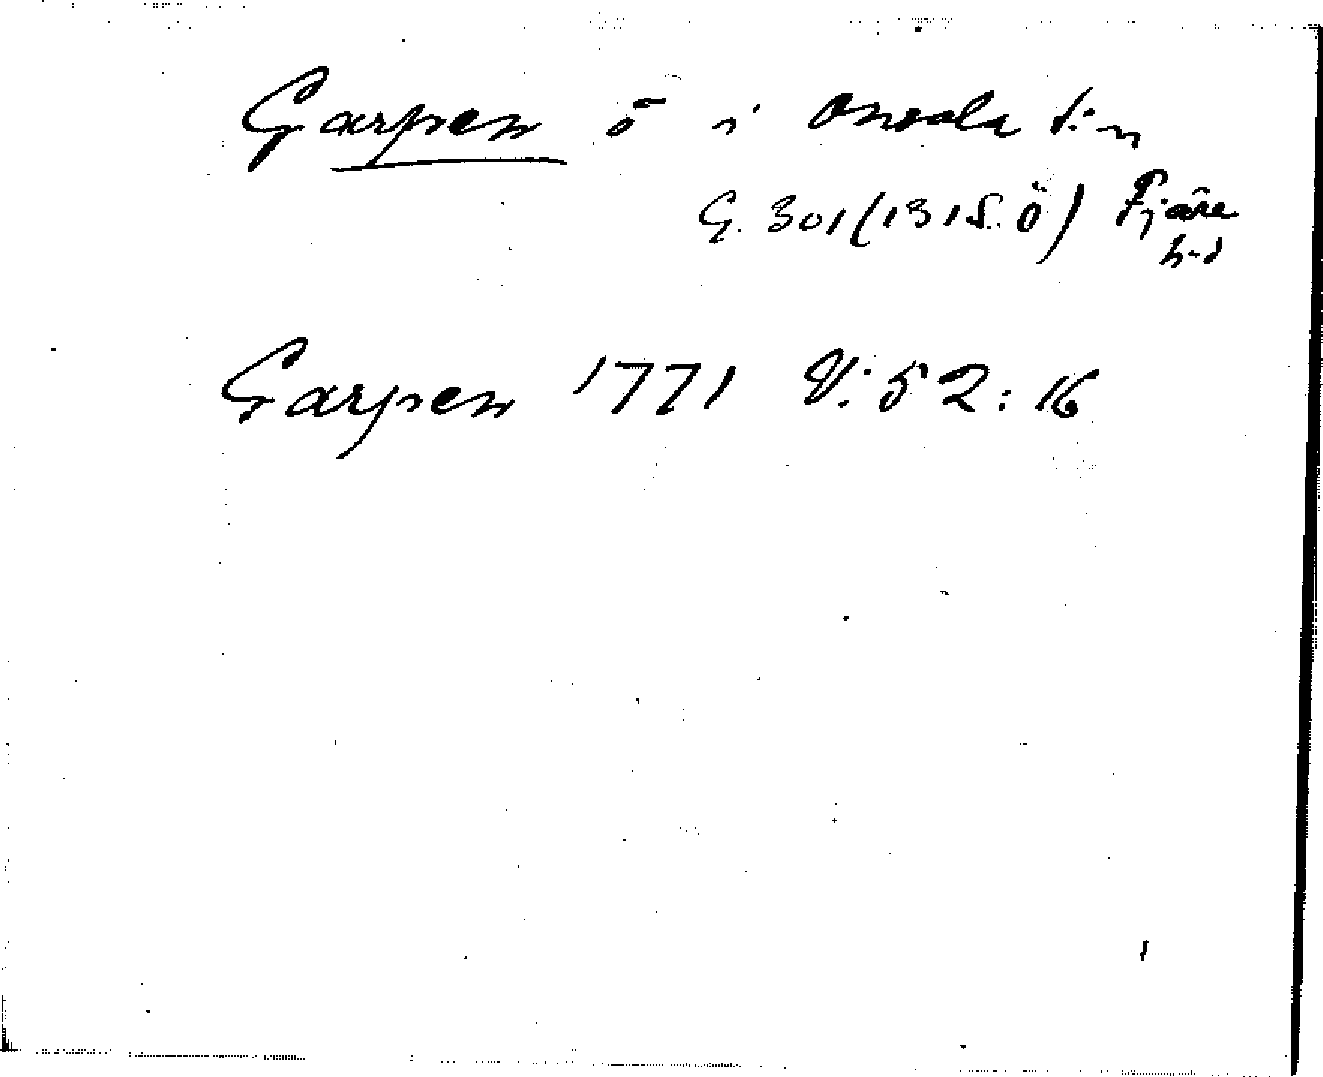 Garpen ö i Onsala s:n
G. 301 (1315. Ö) Fjäre
h-d
Garpen 1771 V: 52: 16